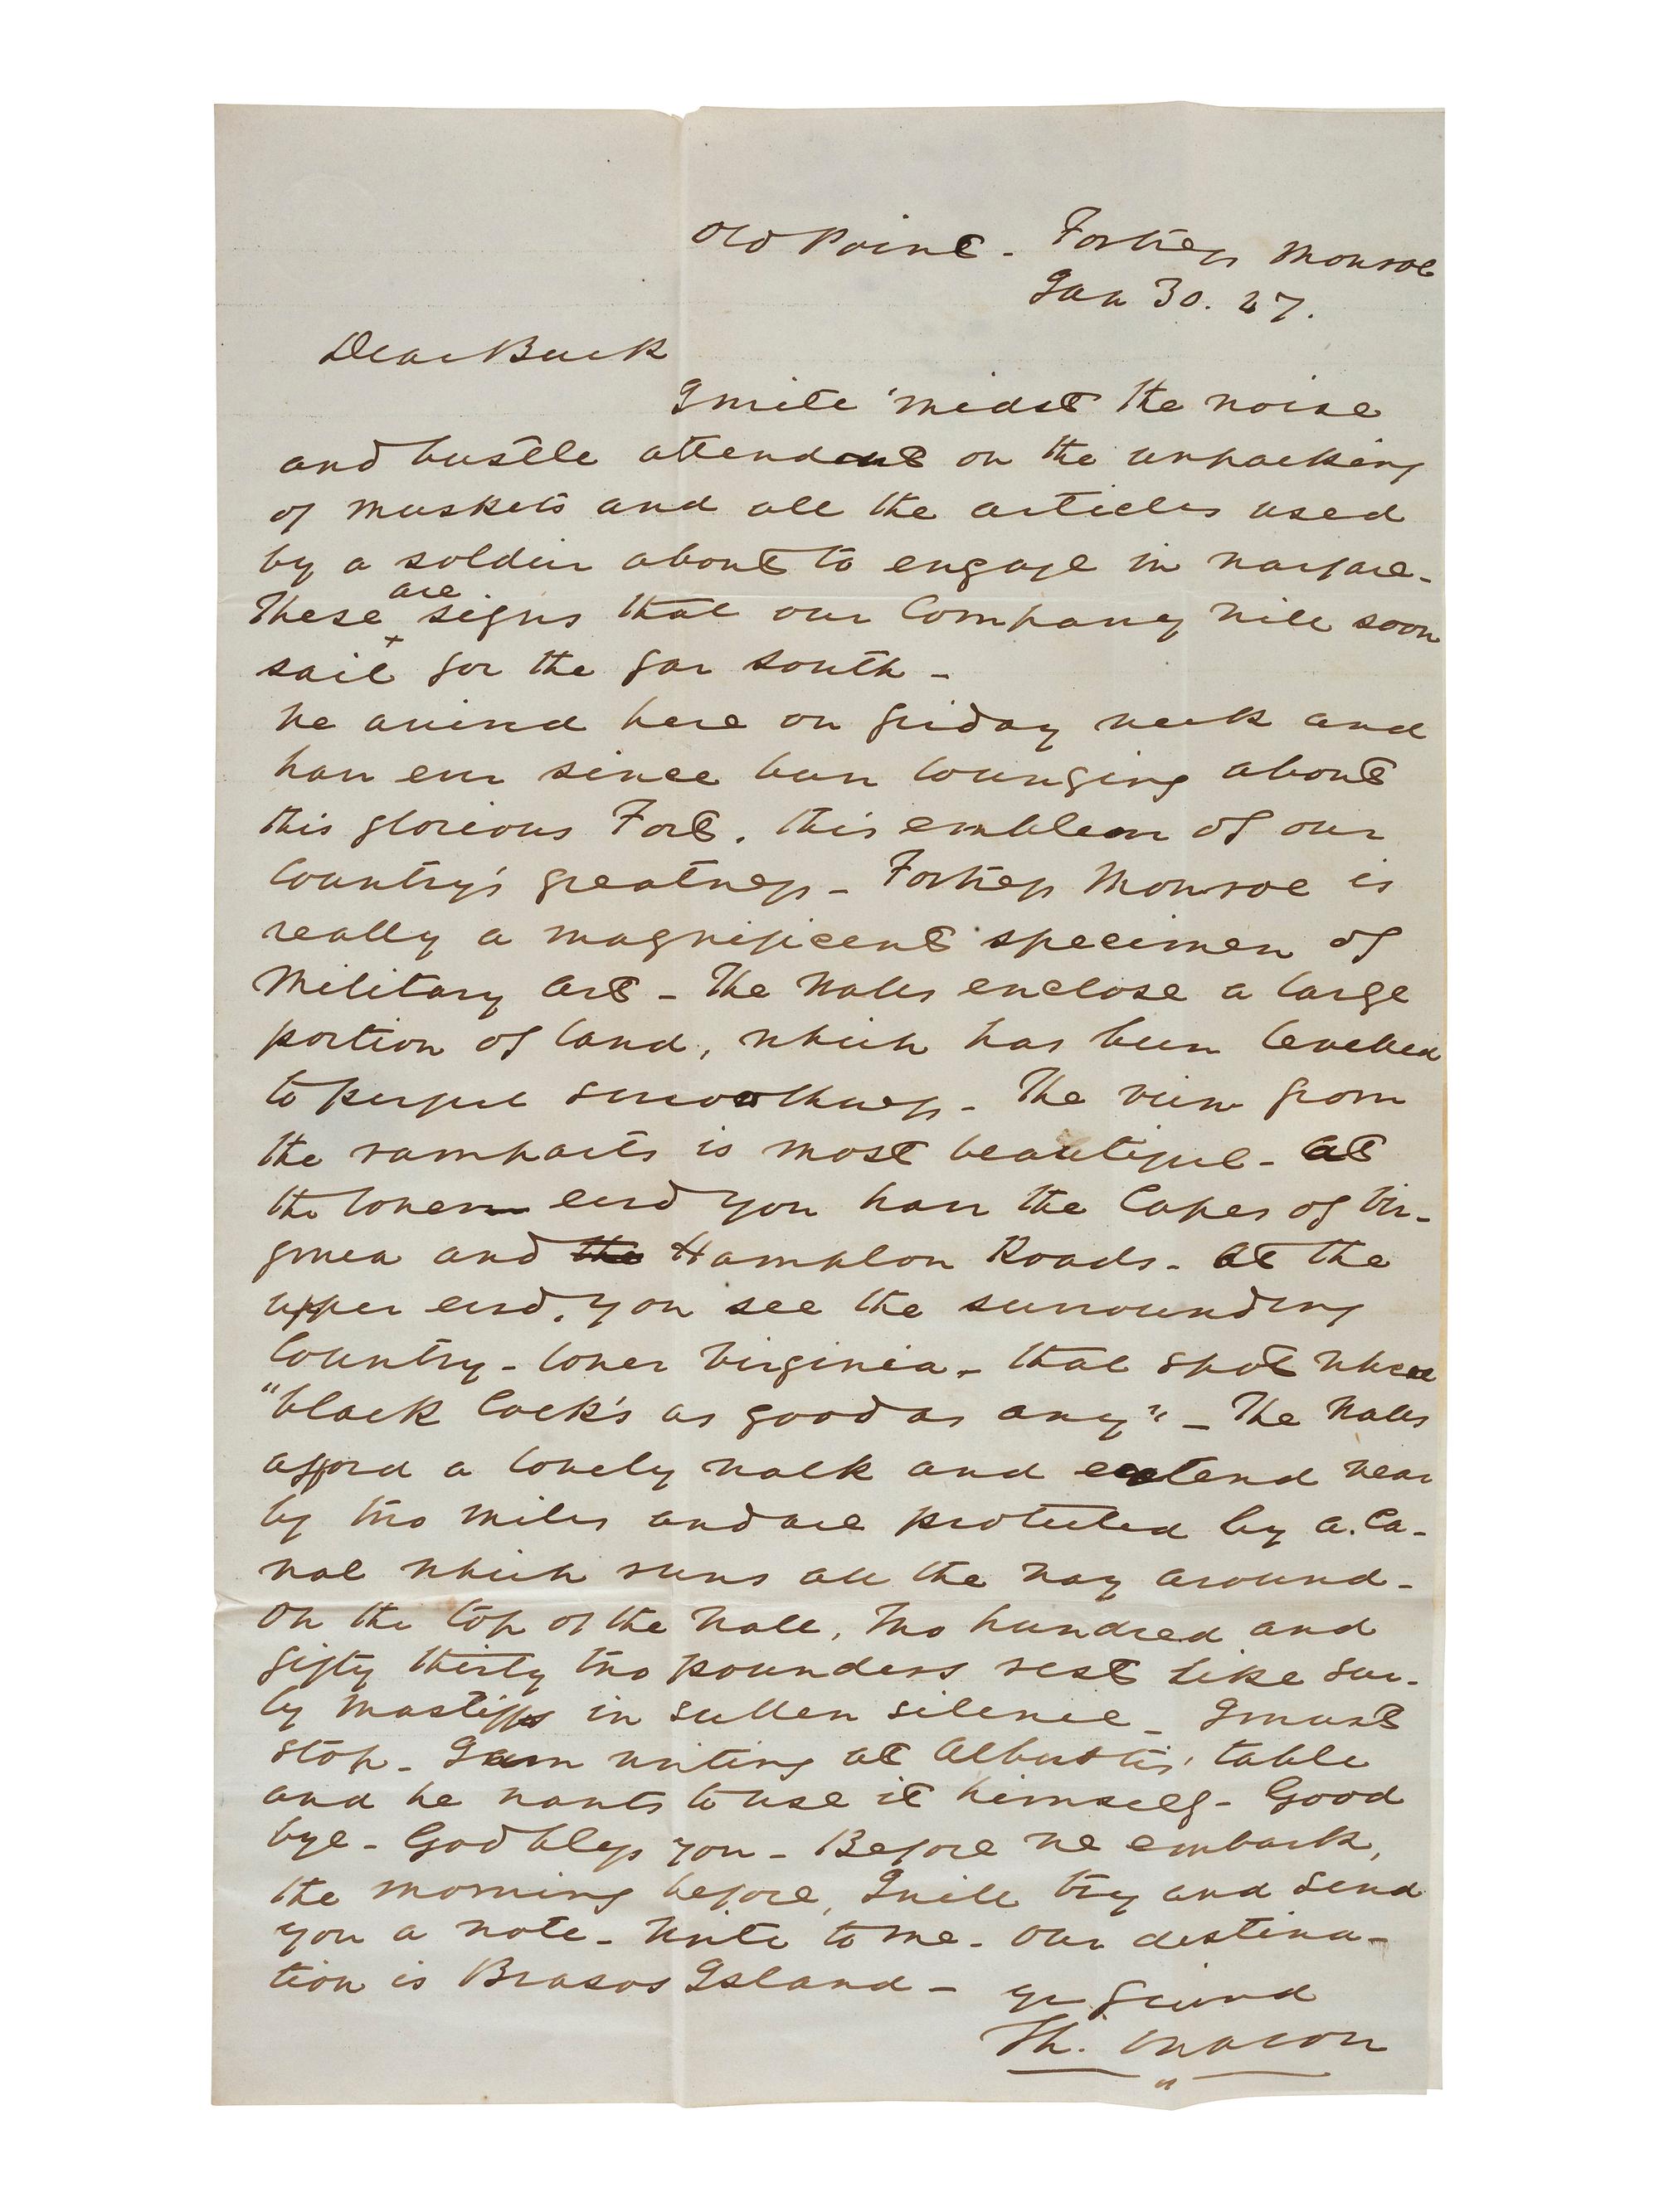 Old Point - Fortress Monroe
Jan 30. 47.
Dear Buck
I write 'midst the noise
and bustle attendant on the unpacking
of muskets and all the articles used
by a soldier about to engage in warfare -
These are signs that our Company will soon
sail for the far South -
We arrived here on friday week and
have ever since been lounging about
this glorious Fort, this emblem of our
Country's greatness - Fortress Monroe is
really a magnificent specimen of
Military Art - The Walls enclose a large
portion of land, which has been levelled
to perfect smoothness - The view from
the ramparts is most beautiful - At
the lower end you have the Capes of Vir-
ginea and the Hampton Roads - At the
upper end, you see the surrounding
Country - lower Virginia - that spot where
"black Cock's as good as any" - The Walls
afford a lovely walk and extend near
by two miles and are protected by a Ca-
nal which runs all the way around -
On the top of the Wall, two hundred and
fifty thirty two pounders rest like sur-
ly mastiffs in sullen silence - I must
stop - I am writing at Alburtis' table
and he wants to use it himself - Good
bye - God bless you - Before we embark,
the morning before, I will try and send
you a note - Write to me - Our destina-
tion is Brasos Island -
yr friend
Th. Macon